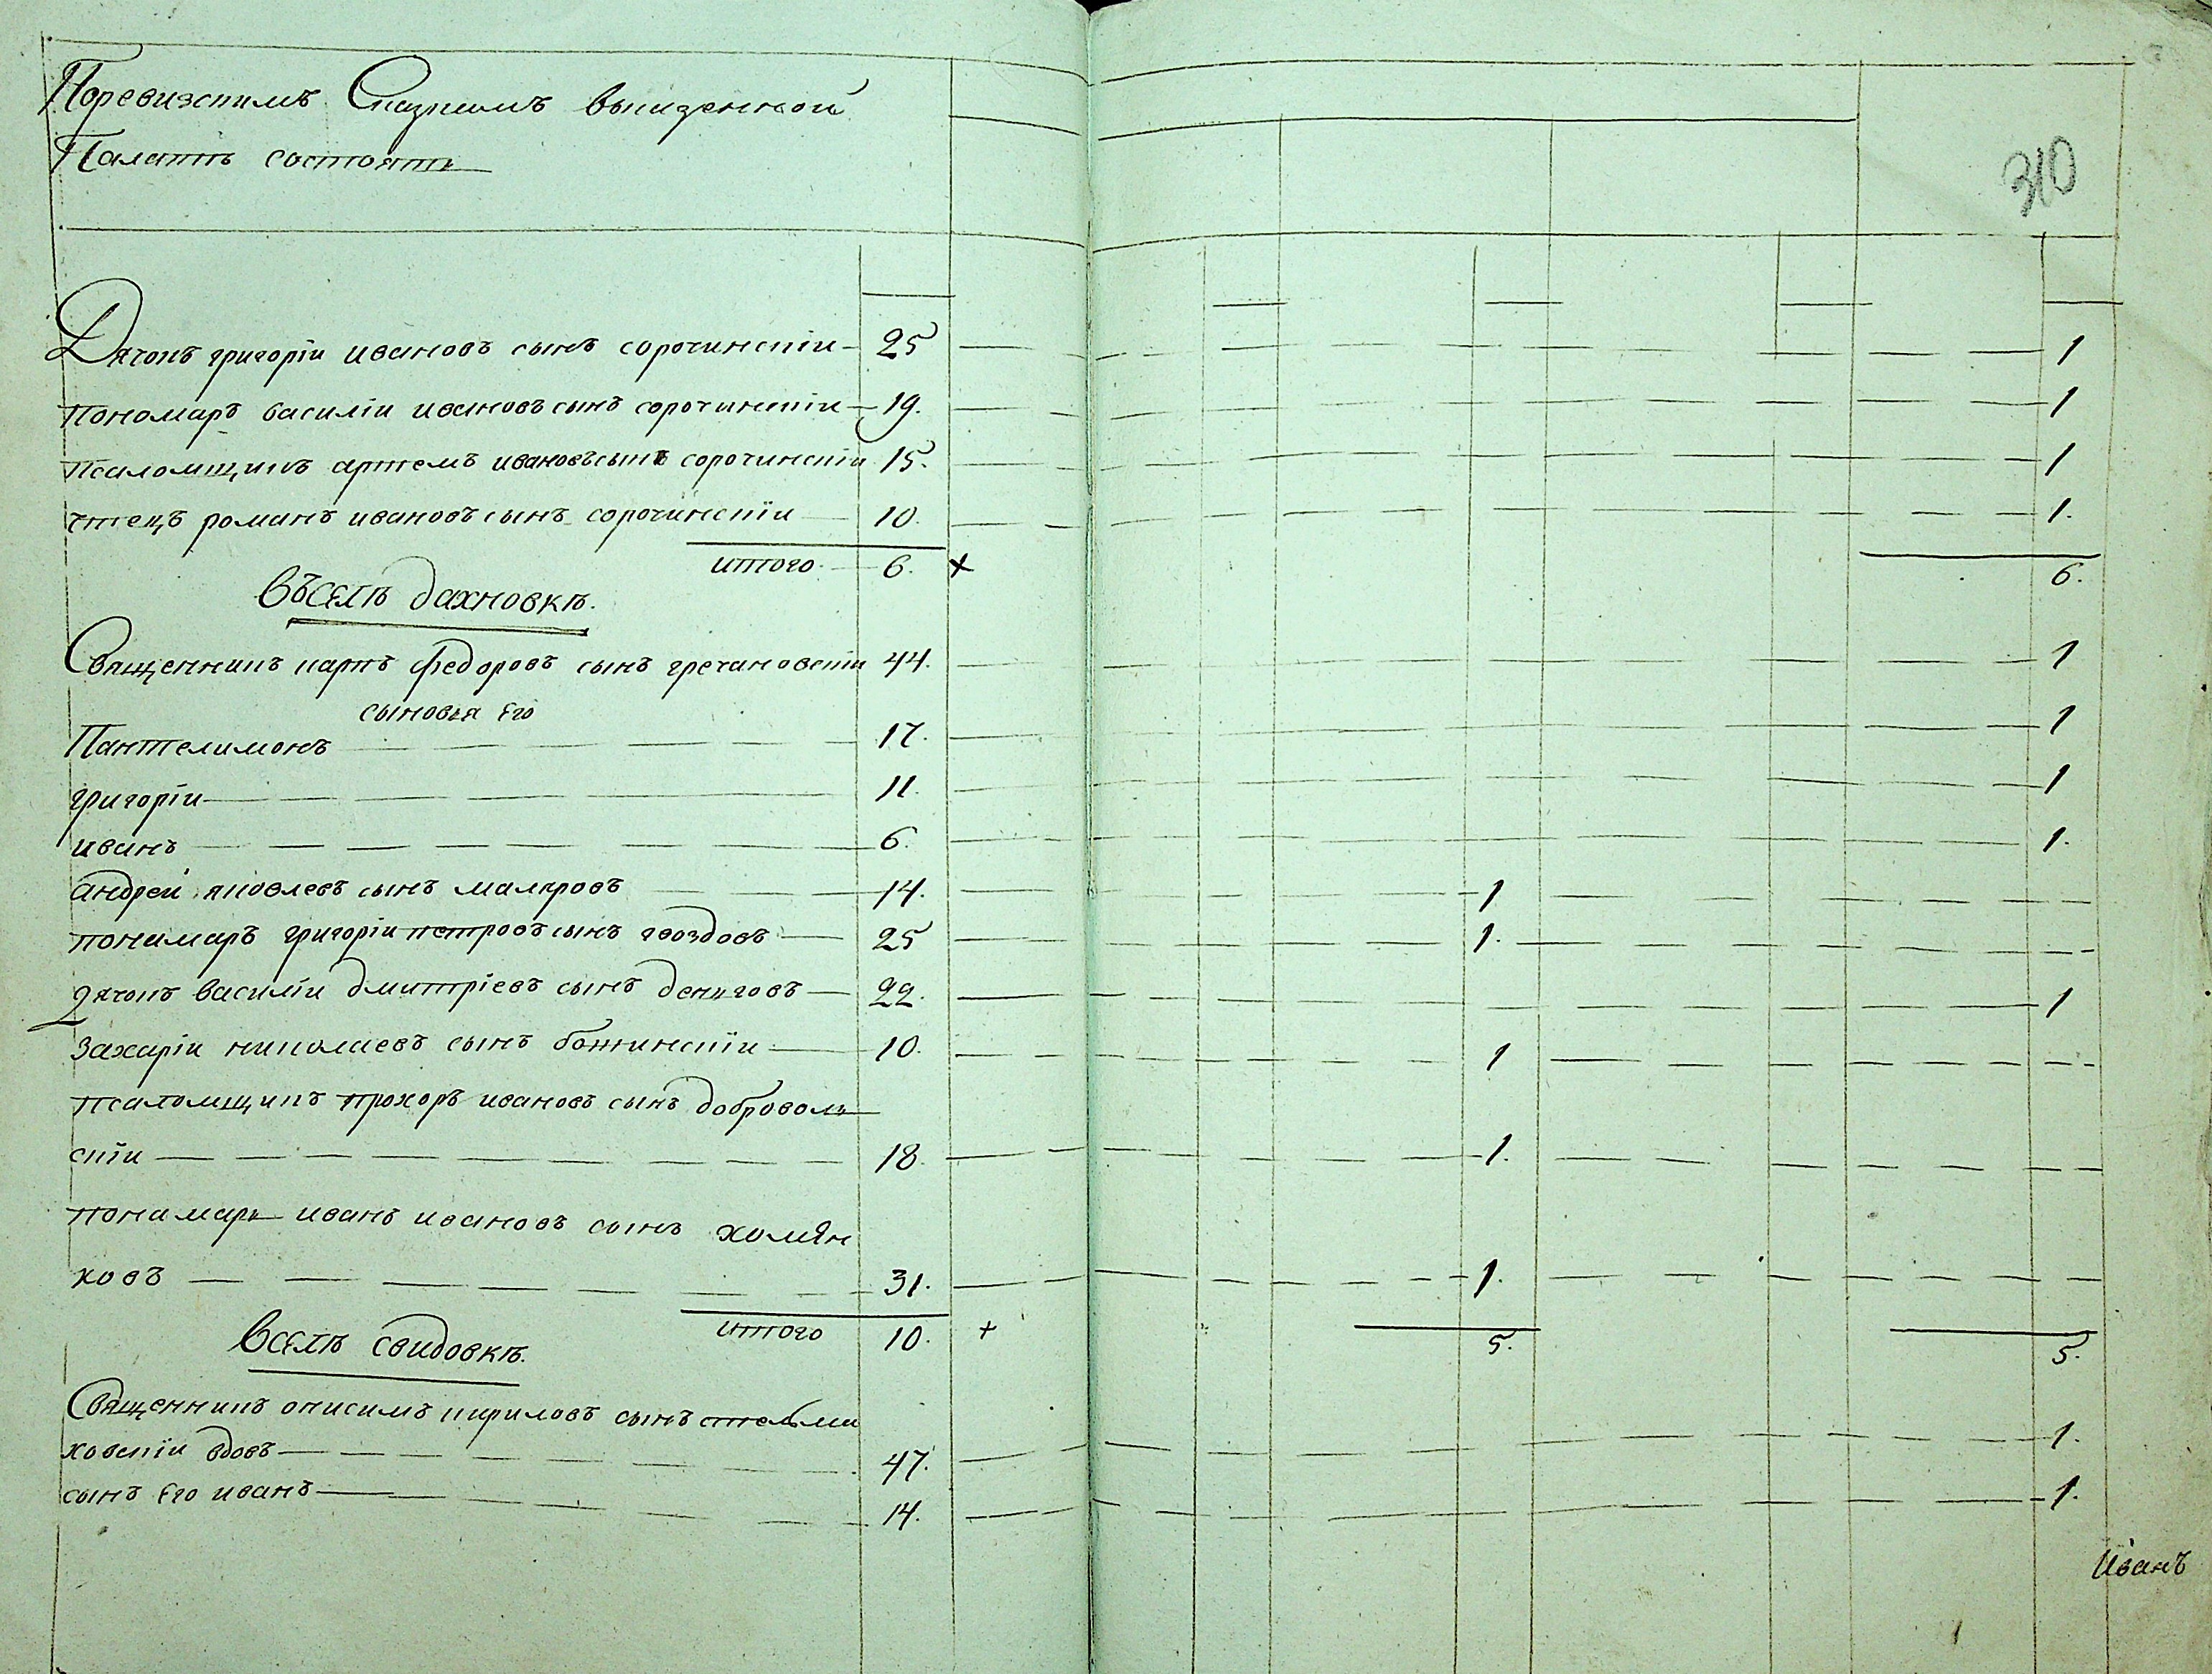 Поревизскимъ Сказкамъ вказенной
Палатѣ состоятъ
310
Дячокъ григоріи ивановъ сынъ сорочинскіи 25 1
пономаръ василіи ивановъ сынъ сорочинскіи 19. 1
псаломщикъ артемъ ивановъ сынъ сорочинскіи 15. 1
чтецъ романъ ивановъ сынъ сорочинскіи 10. 1.
итого 6. + 6.
въселѣ дахновкѣ.
Священникъ карпъ федоровъ сынъ гречановскіи 44. 1
сыновья его
Пантелимонъ 17. 1
григоріи 11. 1
иванъ 6. 1.
андрей яковлевъ сынъ 14. 1
понамаръ григоріи петровъ сынъ гвоздовъ 25 1.
дячокъ василіи дмитріевъ сынъ 22. 1
захаріи николаевъ сынъ божинскіи 10. 1
псаломщикъ прохоръ ивановъ сынъ доброволь
скіи 18. 1.
понамарь иванъ ивановъ сынъ хомян
ковъ 31. 1.
итого 10. + 5. 5.
вселѣ свидовкѣ.
Священникъ онисимъ кириловъ сынъ стельма
ховскіи вдовъ 47. 1.
сынъ его иванъ 14. 1.
Иванъ